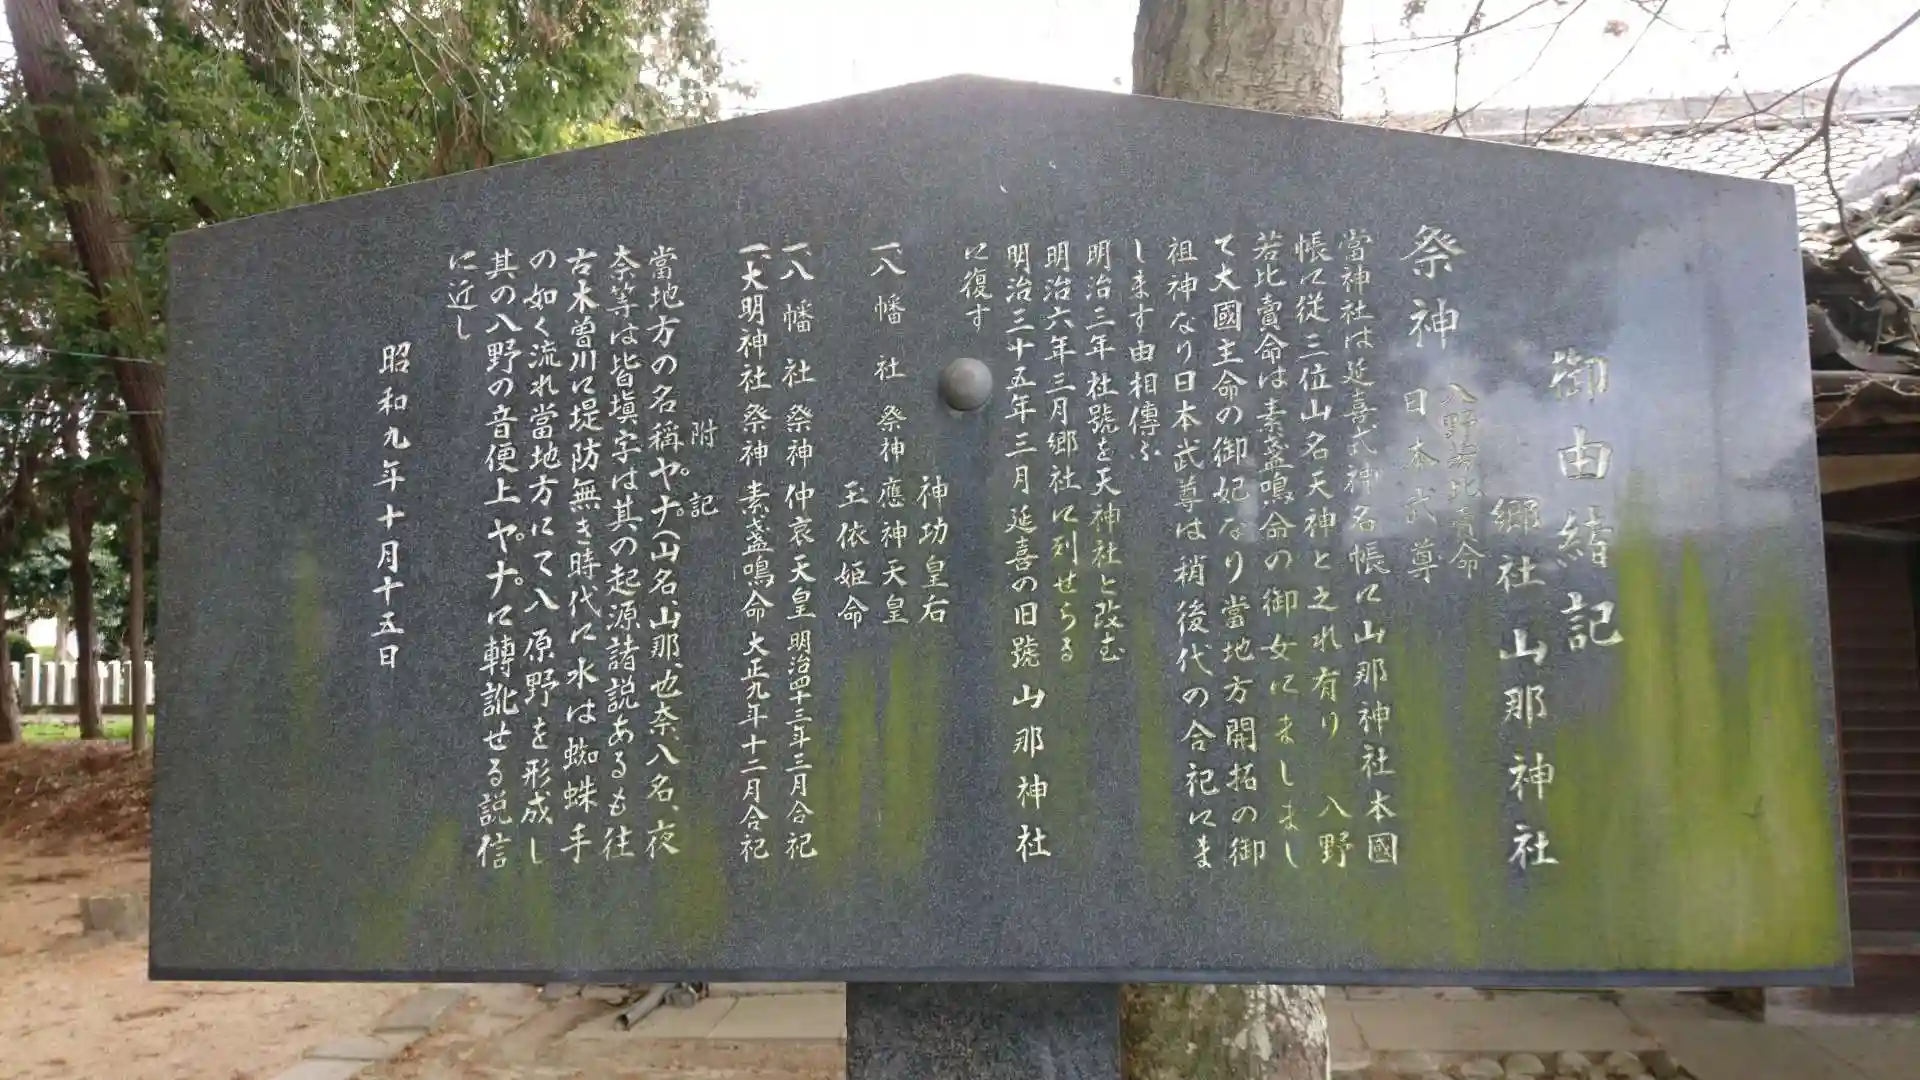 御由緒記
郷社 山那神社
祭神 八野若比賣命
日本武尊
當神社は延喜式神名帳に山那神社本國
帳に従三位山名天神と之れ有り 八野
若比賣命は素盞鳴命の御女にましまし
て大國主命の御妃なり當地方開拓の御
祖神なり日本武尊は稍後代の合祀にま
します由相傳ふ
明治二年社號を天神社と改む
明治六年三月郷社に列せらる
明治三十五年三月延喜の旧號山那神社
に復す
神功皇后
一、八幡社 祭神 應神天皇
玉依姫命
一、八幡社 祭神 仲哀天皇 明治四十三年三月合祀
一、大明神社 祭神 素盞鳴命 大正九年十二月合祀
附記
當地方の名稱ヤナ(山名、山那、也奈、八名、夜
奈等は皆塡字は其の起源諸説あるも往
古木曽川に堤防無き時代に水は蜘蛛手
の如く流れ當地方にて八原野を形成し
其の八野の音便上ヤナに轉訛せる説信
に近し
昭和九年十月十五日